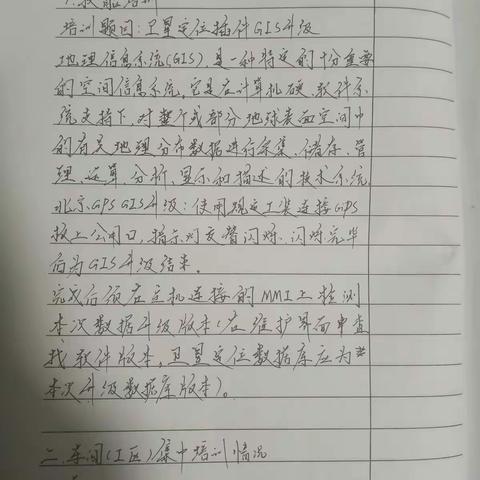 1.技能培训
培训题目:卫星定位插件GIS升级
地理信息系统(GIS),是一种特定的十分重要
的空间信息系统。它是在计算机硬、软件系
统支持下,对整个或部分地球表面空间中
的有关地理分布数据进行采集、储存、管
理、运算、分析、显示和描述的技术系统。
北京GPS GIS升级:使用规定工装连接GPS
板上公用口,指示灯交替闪烁,闪烁完毕
后为GIS升级结束。
完成后须在主机连接的MMI上检测
本次数据升级版本(在维护界面中查
找软件版本,卫星定位数据库应为
本次升级数据库版本)。
二.车间(工区)集中培训情况